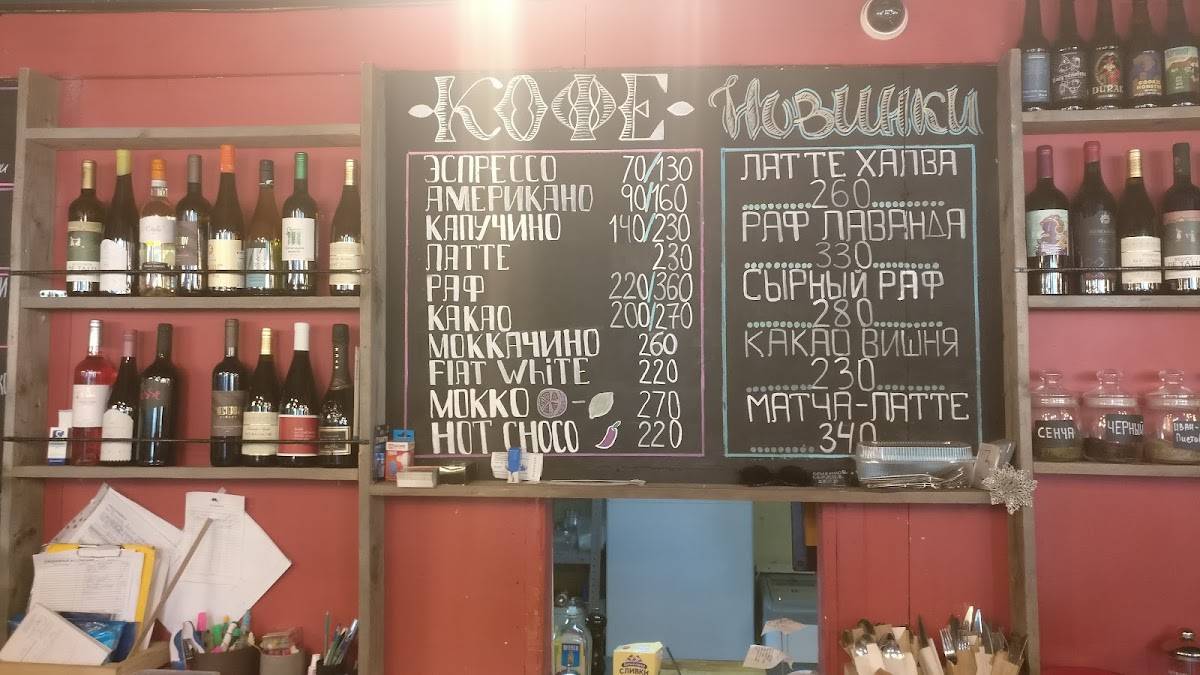 КОФЕ
ЭСПРЕССО 70/130
АМЕРИКАНО 90/160
КАПУЧИНО 140/230
ЛАТТЕ 230
РАФ 220/360
КАКАО 200/270
МОККАЧИНО 260
FLAT WHITE 220
МОККО - 270
HOT CHOCO 220
Новинки
ЛАТТЕ ХАЛВА
260
РАФ ЛАВАНДА
330
СЫРНЫЙ РАФ
280
КАКАО ВИШНЯ
230
МАТЧА-ЛАТТЕ
340
СЕНЧА
ЧЕРНЫЙ
ИВАН-
СЛИВКИ
DURAK